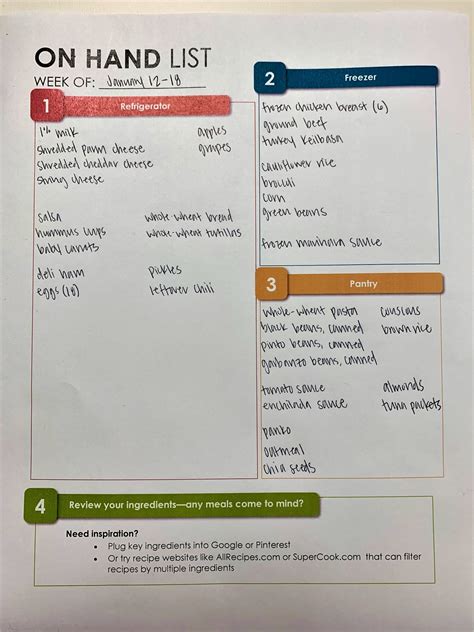 ON HAND LIST
WEEK OF: January 12-18
1 Refrigerator
1% milk apples
shredded parm cheese grapes
shredded cheddar cheese
string cheese
salsa whole-wheat bread
hummus cups whole-wheat tortillas
baby carrots
deli ham pickles
eggs (18) leftover chili
2 Freezer
frozen chicken breast (6)
ground beef
turkey keilbasa
cauliflower rice
broccoli
corn
green beans
frozen marinara sauce
3 Pantry
whole-wheat pasta couscous
black beans, canned brown rice
pinto beans, canned
garbanzo beans, canned
tomato sauce almonds
enchilada sauce tuna packets
panko
oatmeal
chia seeds
4 Review your ingredients—any meals come to mind?
Need inspiration?
• Plug key ingredients into Google or Pinterest
• Or try recipe websites like AllRecipes.com or SuperCook.com that can filter
recipes by multiple ingredients